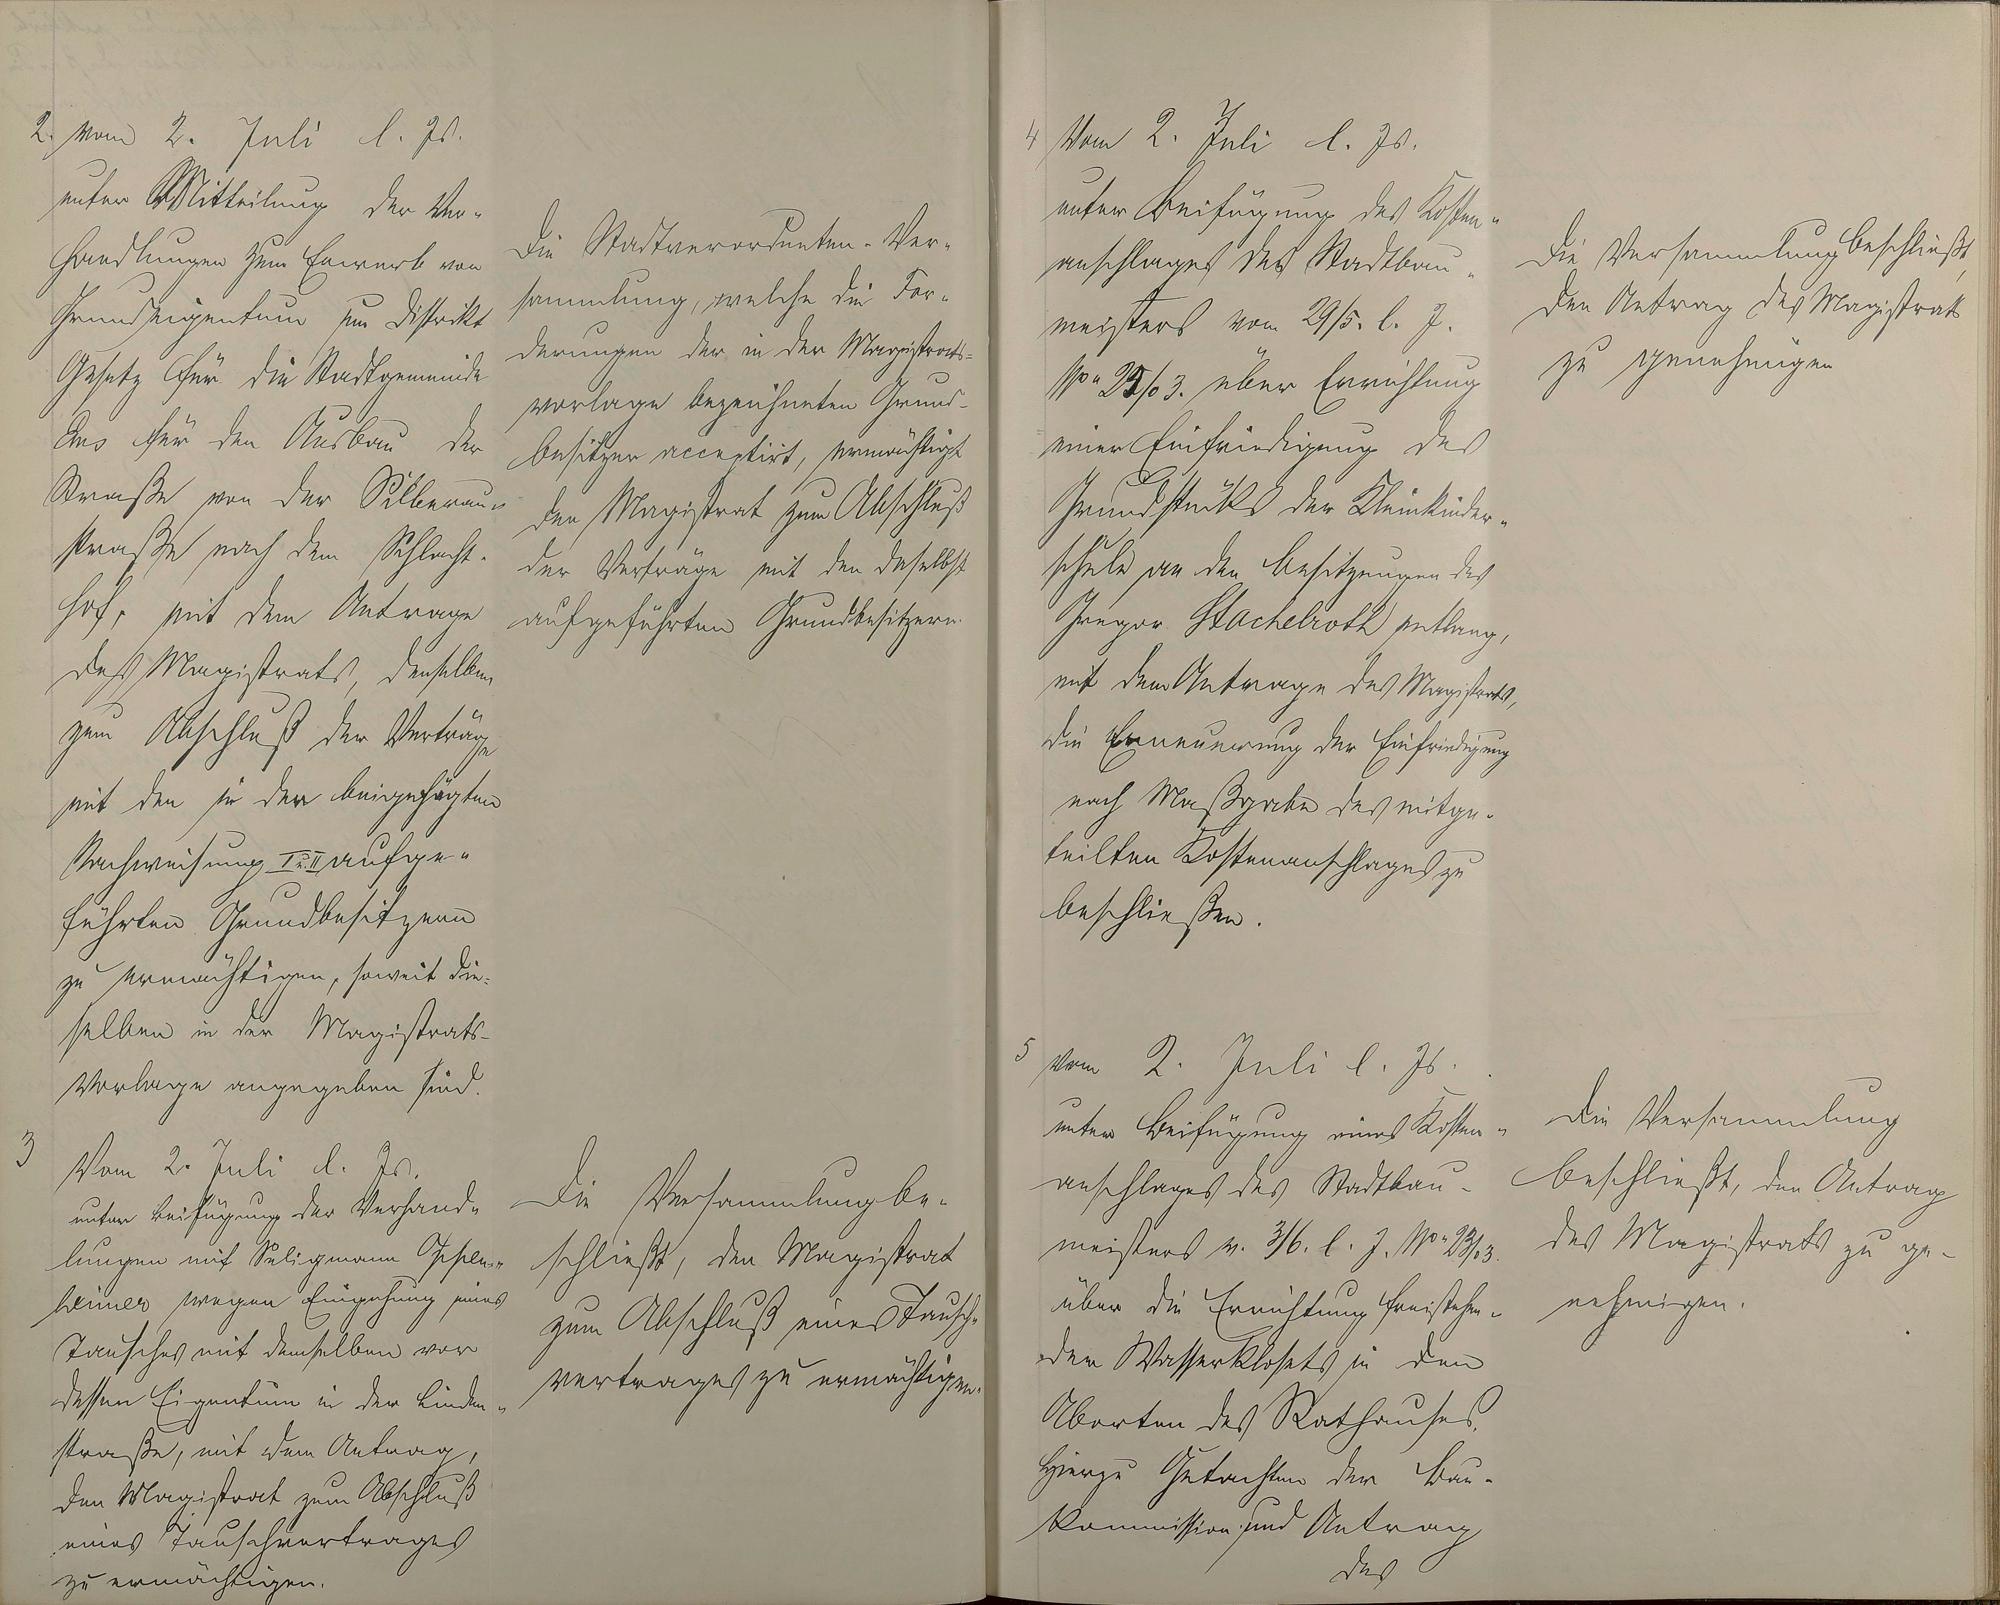 2. Vom 2. Juli l. Js.
unter Mitteilung der Ver-
handlungen zum Erwerb von
Grundeigentum im Distrikt
Gesetz für die Stadtgemeinde
für den Ausbau der
Straße von der Silberau-
straße nach dem Schlacht-
hof, mit dem Antrage
des Magistrats, denselben
zum Abschluß der Verträge
mit den in der beigefügten
Nachweisung I u. II aufge-
führten Grundbesitzern
zu ermächtigen, soweit die-
selben in der Magistrats-
Vorlage angegeben sind.
Die Stadtverordneten-Ver-
sammlung, welche die For-
derungen der in der Magistrats-
vorlage bezeichneten Grund-
besitzer acceptirt, ermächtigt
den Magistrat zum Abschluß
der Verträge mit den daselbst
aufgeführten Grundbesitzern.
3 Vom 2. Juli l. Js.
unter Beifügung der Verhand-
lungen mit Seligmann Oppen-
heimer wegen Eingehung eines
Tausches mit demselben vor
dessen Eigentum in der Linden-
straße, mit dem Antrag,
den Magistrat zum Abschluß
eines Tauschvertrages
zu ermächtigen.
Die Versammlung be-
schließt, den Magistrat
zum Abschluß eines Tausch-
vertrages zu ermächtigen.
4 Vom 2. Juli l. Js.
unter Beifügung des Kosten-
anschlages des Stadtbau-
meisters vom 29/5. l. J.
No 25/03. über Errichtung
einer Einfriedigung des
Grundstücks der Kleinkinder-
schule an den Besitzungen des
Gregor Stachelroth entlang,
mit dem Antrage des Magistrats,
die Erneuerung der Einfriedigung
nach Maßgabe des mitge-
teilten Kostenanschlages zu
beschließen.
Die Versammlung beschließt,
den Antrag des Magistrats
zu genehmigen
5 Vom 2. Juli l. Js.
unter Beifügung eines Kosten-
anschlages des Stadtbau-
meisters v. 3/6. l. J. No 23/03.
über die Errichtung freistehen-
der Wasserklosets in den
Aborten des Rathauses.
Hierzu Gutachten der Bau-
kommission und Antrag
des
Die Versammlung
beschließt, den Antrag
des Magistrats zu ge-
nehmigen.